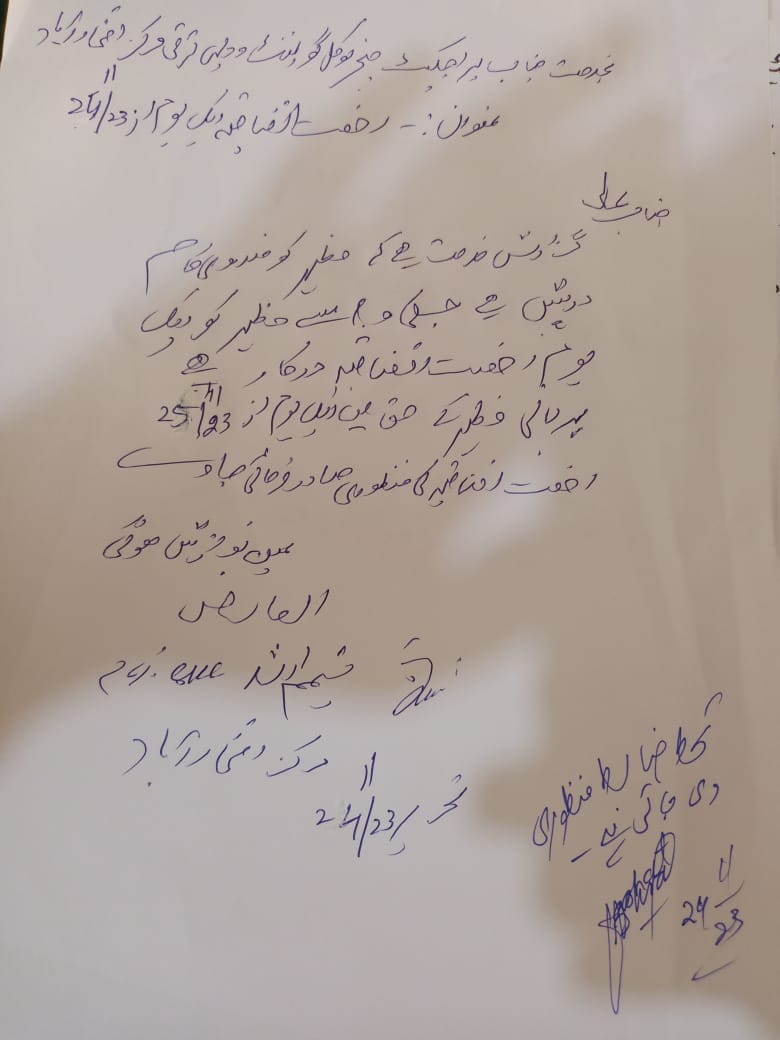 بخدمت جناب پراجیکٹ منیجر لوکل گورنمنٹ و دیہی ترقی مرکز افتخار آباد
عنوان :- رخصت اتفاقیہ ایک یوم از 24/11/23
جناب عالی
گزارش خدمت ہے کہ مظہر کو ضروری کام
درپیش ہے جسکی وجہ سے مظہر کو ایک
یوم رخصت اتفاقیہ درکار ہے
مہربانی فرما کے حق میں ایک یوم از 25/11/23
رخصت اتفاقیہ کی منظوری صادر فرمائی جاوے
عین نوازش ہوگی
العارض
شمیم ارشد
مرکز افتخار آباد
تحریر 24/11/23
ضابطہ منظوری
دی جاتی ہے
24/11/23